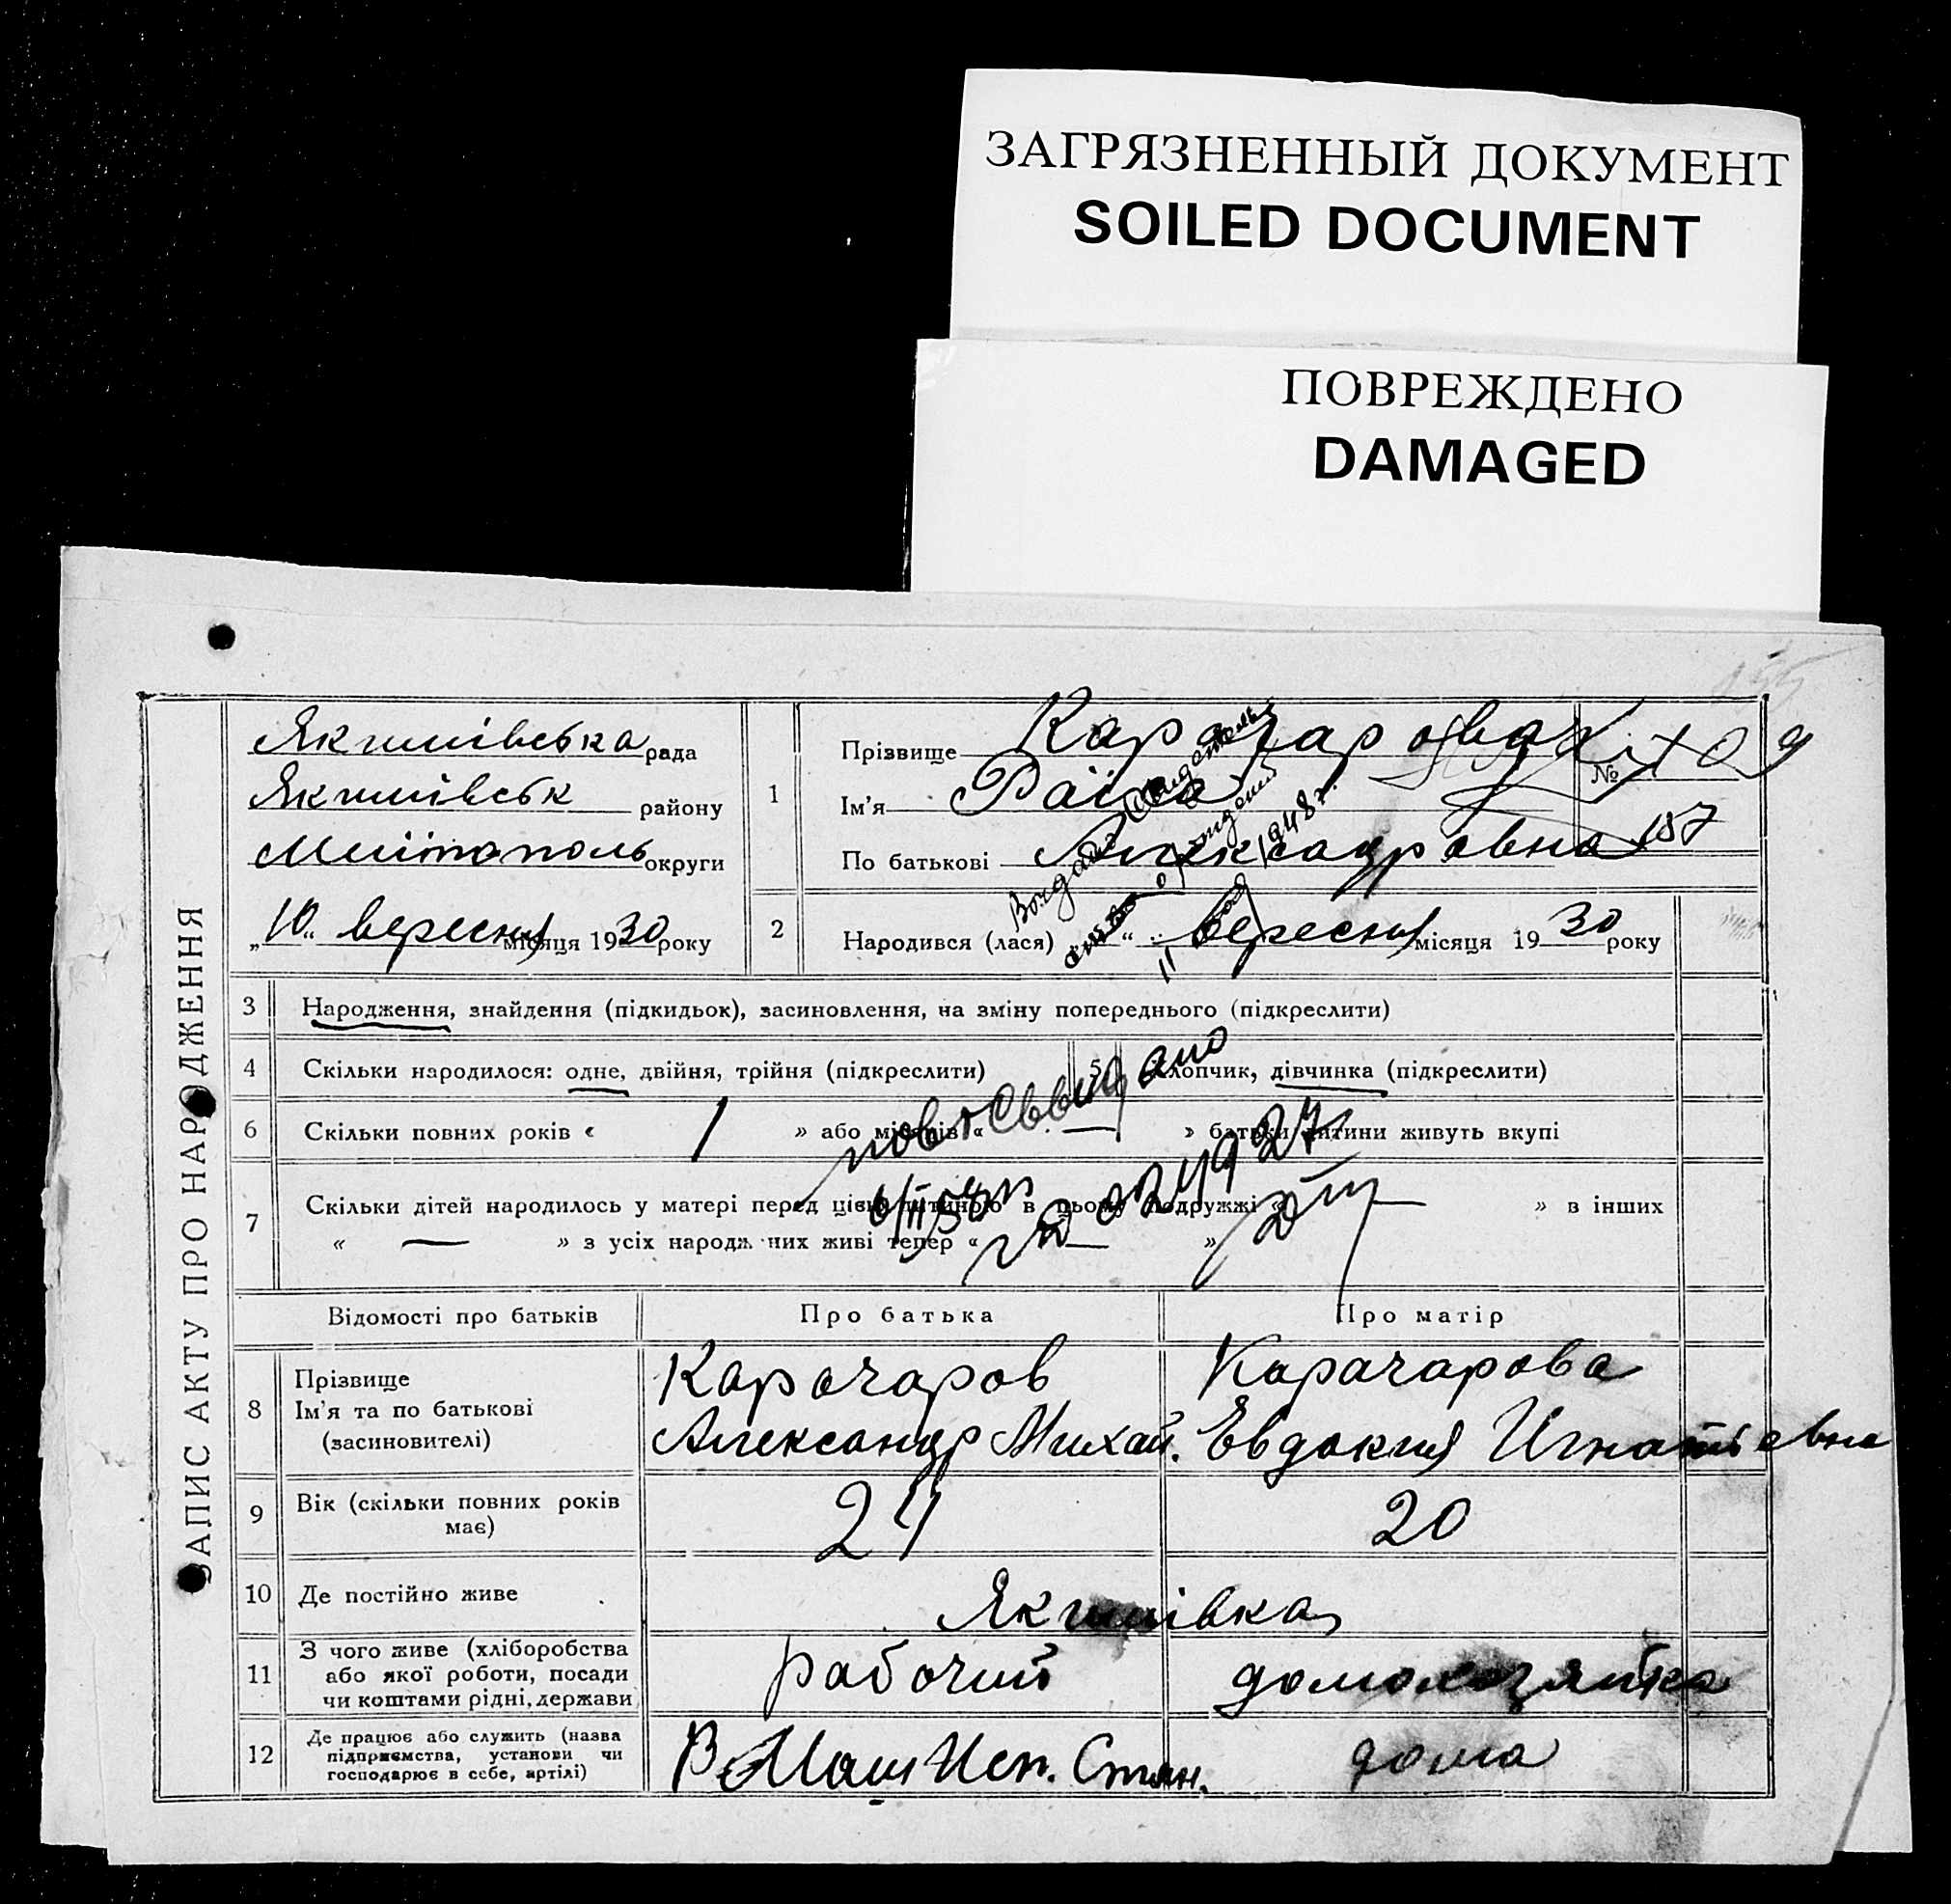 ЗАГРЯЗНЕННЫЙ ДОКУМЕНТ
SOILED DOCUMENT
ПОВРЕЖДЕНО
DAMAGED
ЗАПИС АКТУ ПРО НАРОДЖЕННЯ
Якимівська рада
Якимівськ району
Мелітополь округи
„10“ вересня місяця 1930 року
1
Прізвище Карачарова
№
Ім'я Раїса
По батькові Александровна
187
2
Народився (лася) “ вересня місяця 1930 року
Выдано свидетельство о рождении
11 1948 г.
3 Народження, знайдення (підкидьок), засиновлення, на зміну попереднього (підкреслити)
4 Скільки народилося: одне, двійня, трійня (підкреслити) 5 Хлопчик, дівчинка (підкреслити)
6 Скільки повних років « 1 » або місяців « — » батьки дитини живуть вкупі
7 Скільки дітей народилось у матері перед цією дитиною в цьому подружжі « » в інших
« — » з усіх народжених живі тепер « — »
Відомості про батьків Про батька Про матір
8 Прізвище
Ім'я та по батькові
(засиновителі)
Карачаров
Александр Михай.
Карачарова
Евдокия Игнатьевна
9 Вік (скільки повних років має) 24 20
10 Де постійно живе Якимівка
11 З чого живе (хліборобства
або якої роботи, посади
чи коштами рідні, держави
рабочий домохозяйка
12 Де працює або служить (назва
підприємства, установи чи
господарює в себе, артілі)
В Маш Исп. Стан. дома